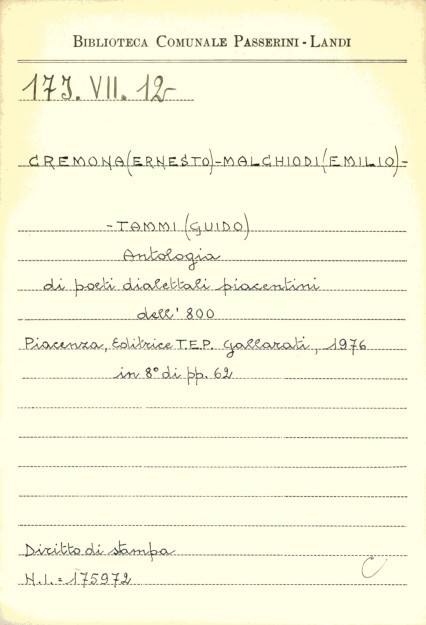 BIBLIOTECA COMUNALE PASSERINI - LANDI
17J. VII. 12-
CREMONA (ERNESTO) - MALCHIODI (EMILIO) -
- TAMMI (GUIDO)
Antologia
di poeti dialettali piacentini
dell' 800
Piacenza, Editrice T.E.P. Gallarati, 1976
in 8° di pp. 62
Diritto di stampa
N.I. = 175972
C